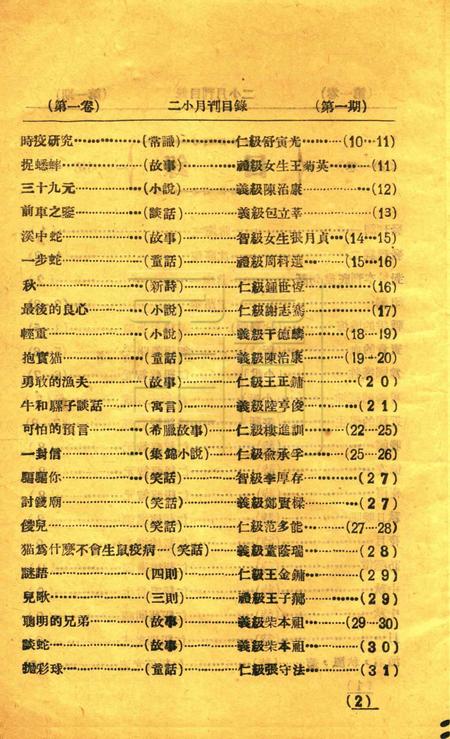 (第一卷) 二小月刊目錄 (第一期)
時疫研究…………(常識)…………仁級舒寅光……(10…11)
捉蟋蟀…………(故事)…………禮級女生王菊英……(11)
三十九元…………(小說)…………義級陳治康……(12)
前車之鑒…………(談話)…………義級包立莘…………(13)
溪中蛇…………(故事)…………智級女生張月貞…(14…15)
一步蛇…………(童話)…………禮級周科運…(15…16)
秋…………(新詩)…………仁級鍾世恆…………(16)
最後的良心…………(小說)…………仁級謝志鵉…………(17)
輕重…………(小說)…………義級干德麟…………(18…19)
抱寶猫…………(童話)…………義級陳治康…………(19…20)
勇敢的漁夫…………(故事)…………仁級王正鏞…………(20)
牛和騾子談話…………(寓言)…………義級陸亨俊…………(21)
可怕的預言…………(希臘故事)…………仁級樓進訓…………(22…25)
一封信…………(集錦小說)…………仁級俞承孚…………(25…26)
騙騙你…………(笑話)…………智級李厚存…………(27)
討錢廟…………(笑話)…………義級鄭賢樑…………(27)
儍兒…………(笑話)…………仁級范多能…………(27…28)
猫爲什麽不會生鼠疫病…(笑話)…………義級童蔭瑞…………(28)
謎語…………(四則)…………仁級王金鏞…………(29)
兒歌…………(三則)…………禮級王子…………(29)
聰明的兄弟…………(故事)…………義級柴本祖…………(29…30)
談蛇…………(故事)…………義級柴本祖…………(30)
拋彩球…………(童話)…………仁級張守法…………(31)
(2)